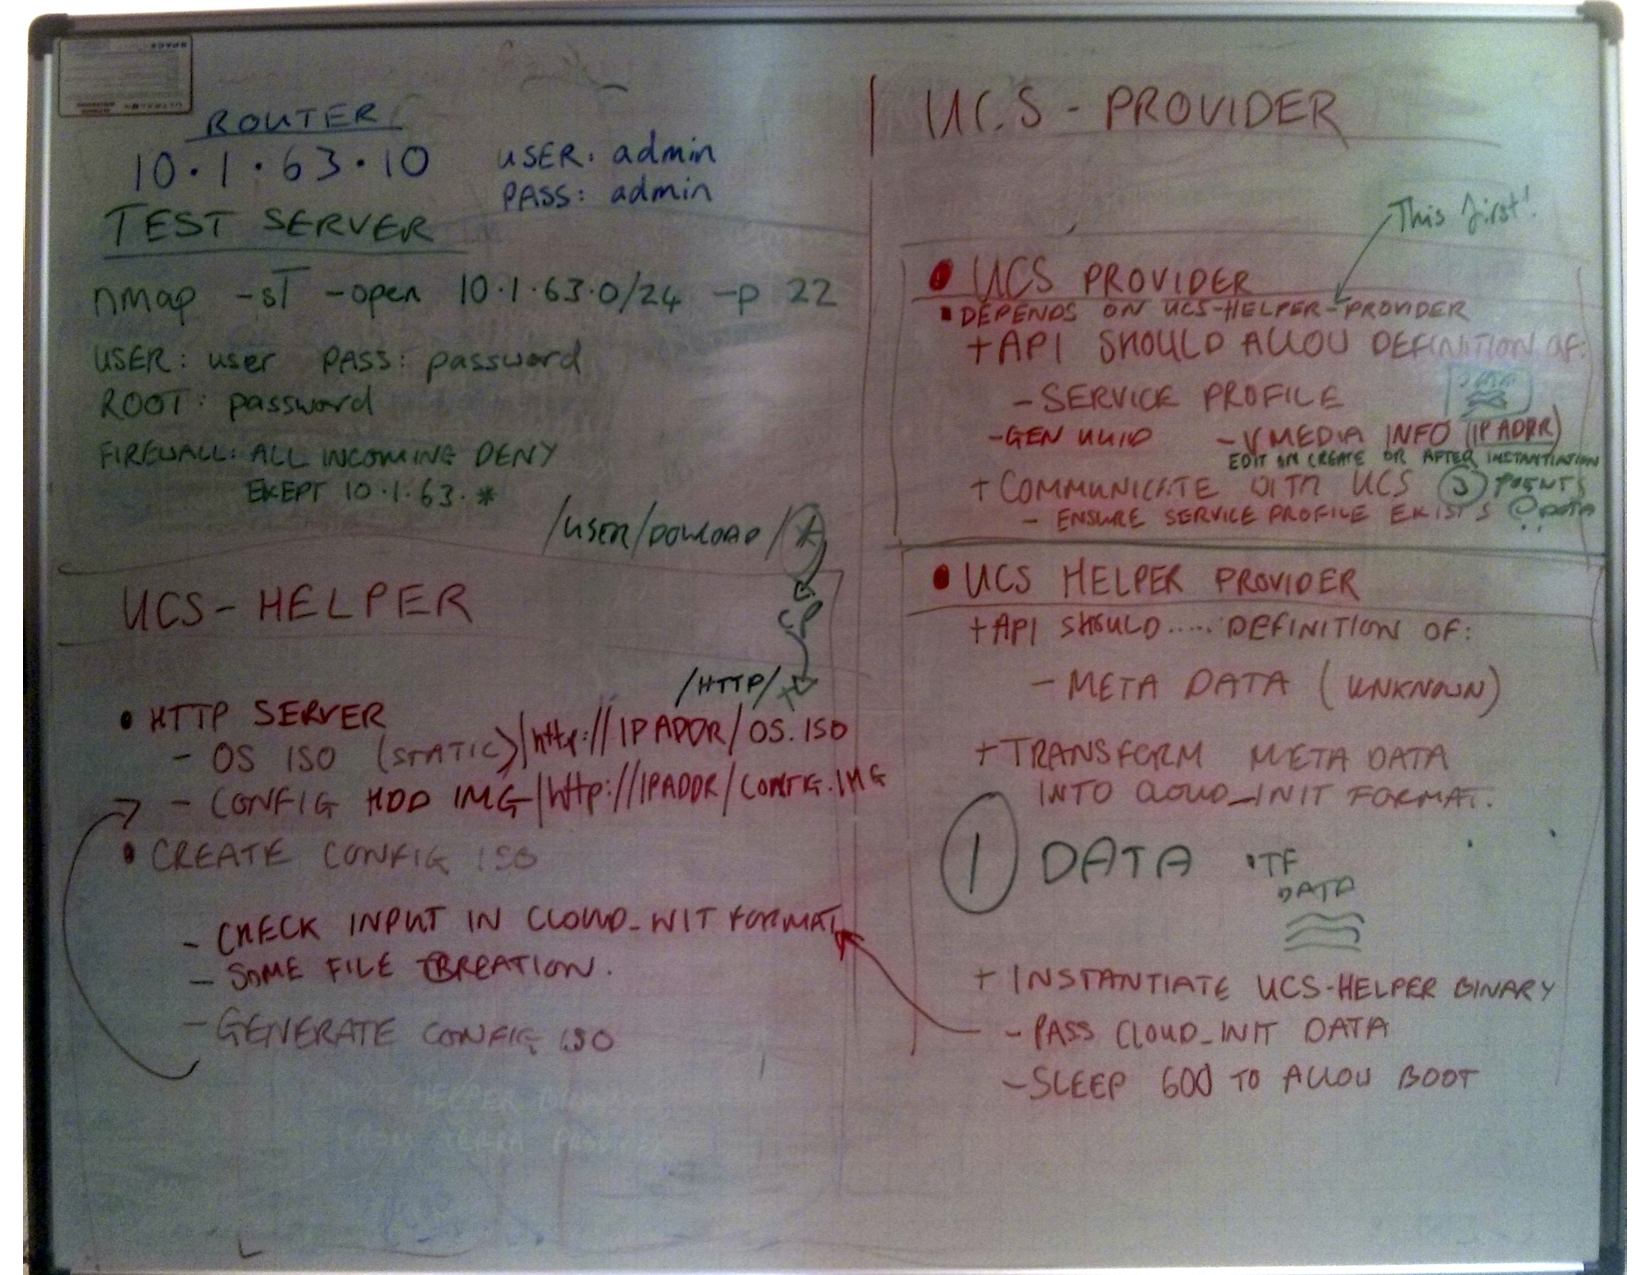 ROUTER
10.1.63.10
USER: admin
PASS: admin
TEST SERVER
nmap -sT -open 10.1.63.0/24 -p 22
USER: user PASS: password
ROOT: password
FIREWALL: ALL INCOMING DENY
EXEPT 10.1.63.*
/USER/DOWLOAD/*
CP
/HTTP/
UCS-HELPER
• HTTP SERVER
- OS ISO (STATIC) | http://IPADDR/OS.ISO
- CONFIG HDD IMG | http://IPADDR/CONFIG.IMG
• CREATE CONFIG ISO
- CHECK INPUT IN CLOUD_INIT FORMAT
- SOME FILE CREATION.
- GENERATE CONFIG ISO
HELPER
UCS - PROVIDER
This first!
• UCS PROVIDER
▪ DEPENDS ON UCS-HELPER-PROVIDER
+ API SHOULD ALLOW DEFINITION OF:
- SERVICE PROFILE
- GEN UUID - VMEDIA INFO (IP ADDR)
EDIT ON CREATE OR AFTER INSTANTIATION
+ COMMUNICATE WITH UCS 3 POINTS
- ENSURE SERVICE PROFILE EXISTS DATA
• UCS HELPER PROVIDER
+ API SHOULD..... DEFINITION OF:
- META DATA (UNKNOWN)
+ TRANSFORM META DATA
INTO CLOUD_INIT FORMAT.
1 DATA • TF
DATA
+ INSTANTIATE UCS-HELPER BINARY
- PASS CLOUD_INIT DATA
- SLEEP 600 TO ALLOW BOOT